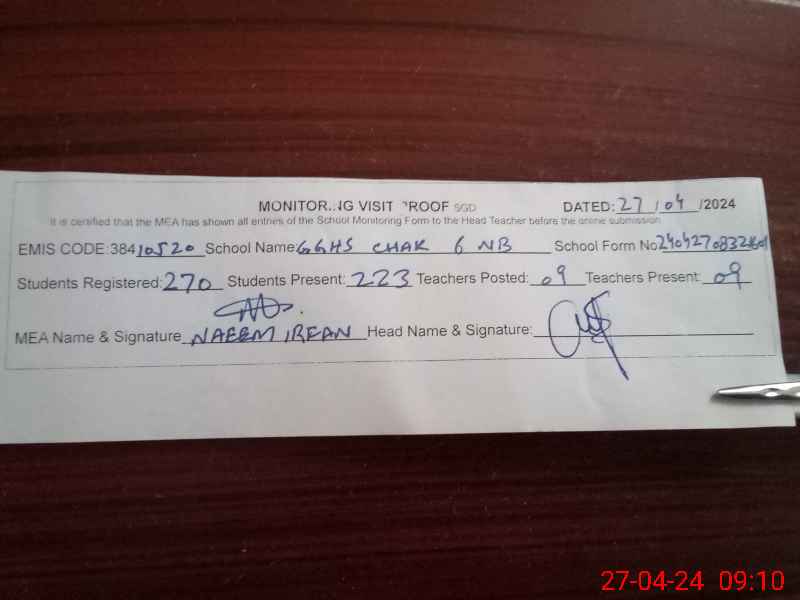 MONITORING VISIT PROOF SGD DATED: 27 / 04 /2024
It is certified that the MEA has shown all entries of the School Monitoring Form to the Head Teacher before the online submission.
EMIS CODE:38410520 School Name: GGHS CHAK 6 NB School Form No
Students Registered: 270 Students Present: 223 Teachers Posted: 09 Teachers Present: 09
MEA Name & Signature NAEEM IRFAN Head Name & Signature:
27-04-24 09:10